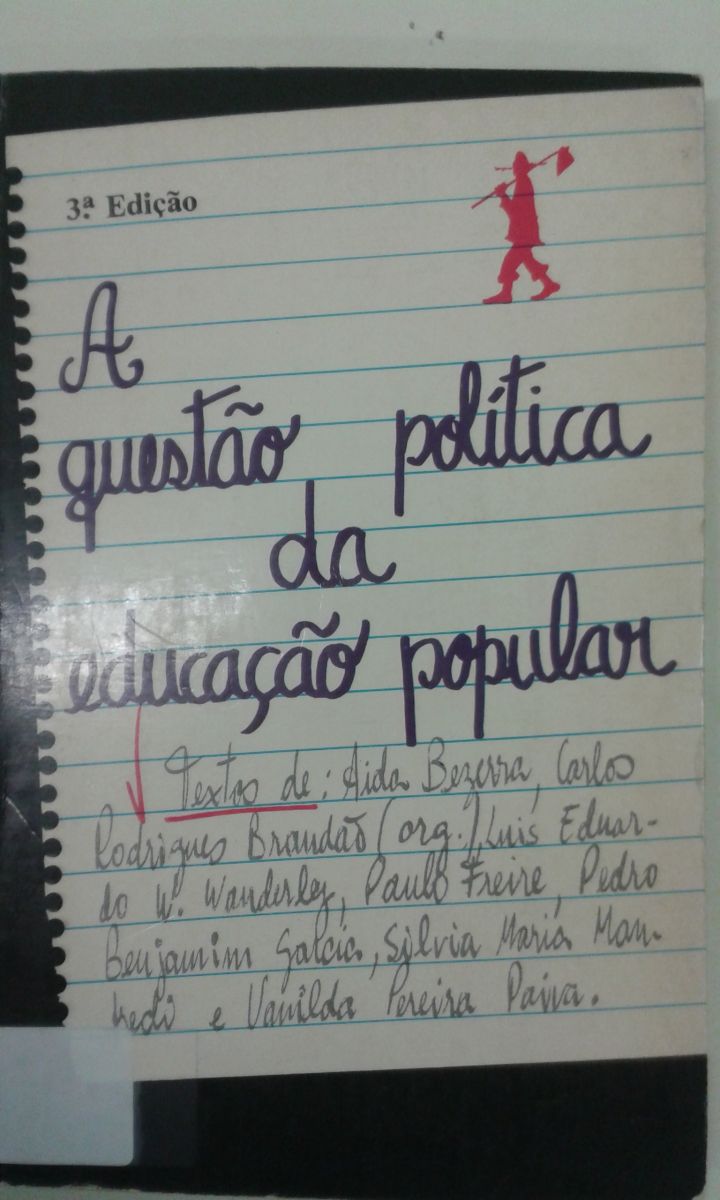 3ª Edição
A
questão política
da
educação popular
Textos de: Aida Bezerra, Carlos
Rodrigues Brandão (org.) Luis Eduar-
do W. Wanderley, Paulo Freire, Pedro
Benjamim Garcia, Silvia Maria Man-
fredi e Vanilda Pereira Paiva.